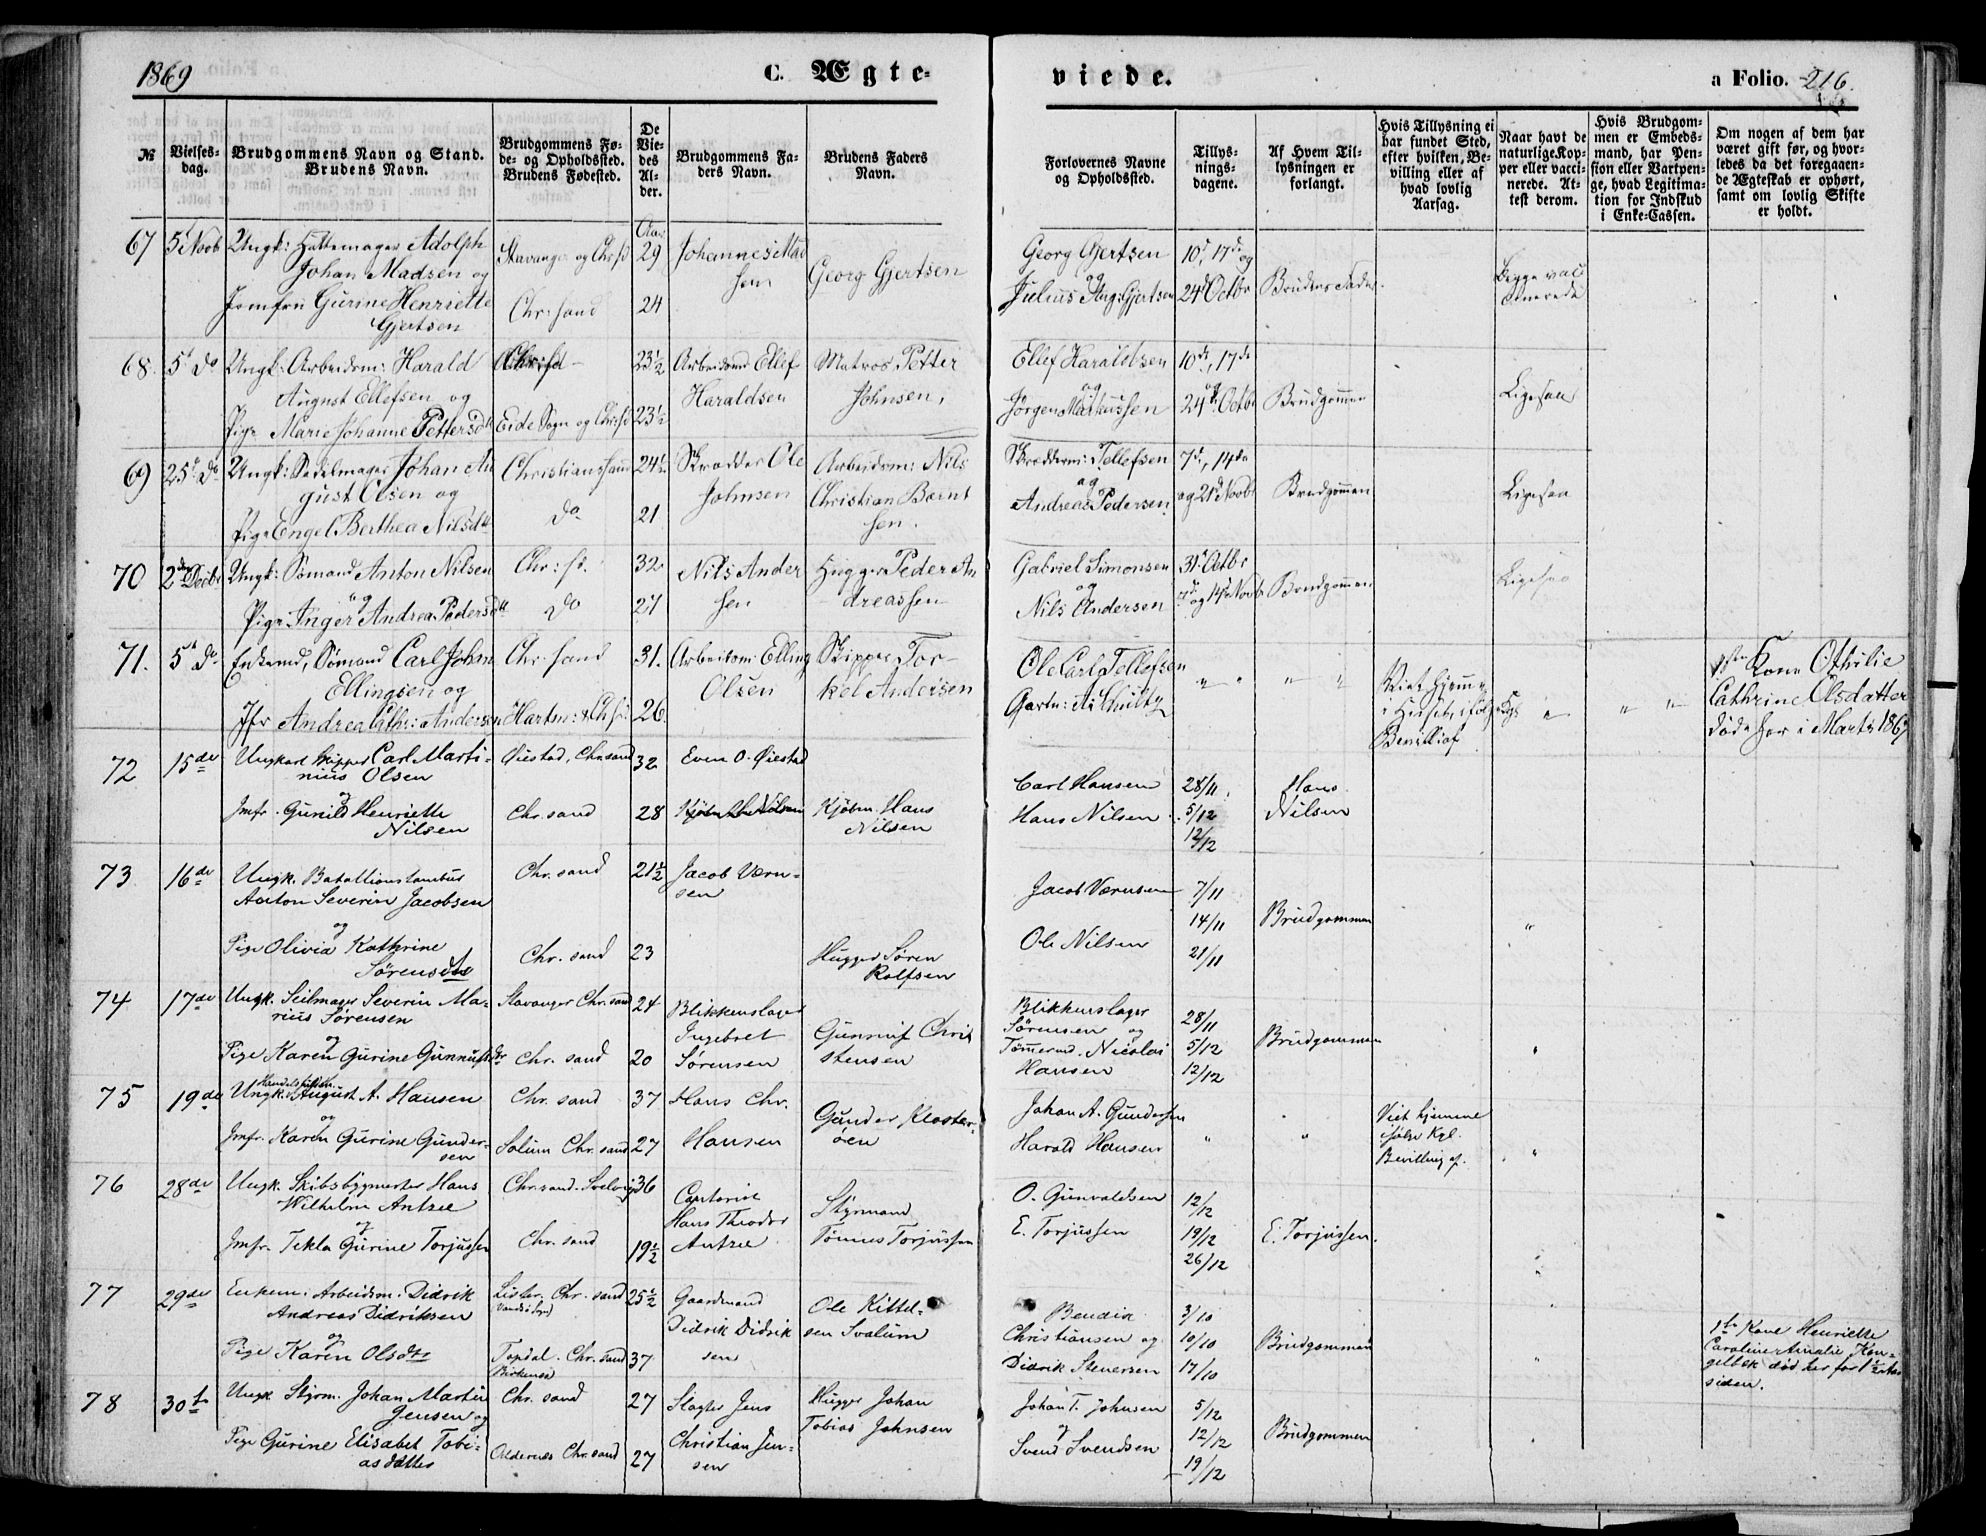 1869
C. Ægte-
viede.
a Folio. 216.
№
Vielses-
dag.
Brudgommens Navn og Stand.
Brudens Navn.
Brudgommens Fø-
de- og Opholdssted.
Brudens Fødested.
De
Vie-
des
Al-
der.
Brudgommens Fa-
ders Navn.
Brudens Faders
Navn.
Forlovernes Navne
og Opholdssted.
Tillys-
nings-
dagene.
Af Hvem Til-
lysningen er
forlangt.
Hvis Tillysning ei
har fundet Sted,
efter hvilken, Be-
villing eller af
hvad lovlig
Aarsag.
Naar havt de
naturlige Kop-
per eller vacci-
nerede. At-
test derom.
Hvis Brudgom-
men er Embeds-
mand, har Pen-
sion eller Vartpen-
ge, hvad Legitima-
tion for Indskud
i Enke-Cassen.
Om nogen af dem har
været gift før, og hvor-
ledes da det foregaaen-
de Ægteskab er ophørt,
samt om lovlig Skifte
er holdt.
67
5t Novb
Ungk: Hattemager Adolph
Johan Madsen og
Jomfru Gurine Henriette
Gjertsen
Stavanger og Chrsd
Chr: sand
Aar
29
24
Johannes Mad
sen
Georg Gjertsen
Georg Gjertsen
og
Julius Aug: Gjertsen
10d, 17de og
24d Octbr
Brudens Fader
Begge vac
cinerede
68.
5t do
Ungk: Arbeidsm: Harald
August Ellefsen og
Pige Marie Johanne Pettersdtr
Chr: sd
Eide Sogn og Chr: sd
23½
23½
Arbeidsmd Ellef
Haraldsen
Matros Petter
Johnsen,
Ellef Haraldsen
og
Jørgen Mathussen
10de, 17de
og
24d Octbr
Brudgommen
Ligesaa
69
25t do
Ungk: Sadelmager Johan Au
gust Olsen og
Pige Engel Berthea Nilsdtr
Christianssand
do
24½
21
Skrædder Ole
Johnsen
Arbeidsm: Nils
Christian Bernt
sen.
Skrædderm: Tellefsen
og
Andreas Pedersen
7d, 14de
og 21d Novbr
Brudgommen
Ligesaa
70
2den Decbr
Ungk: Sømand Anton Nilsen
og
Pige Inger Andrea Pedersdtr
Chr: sd.
do
32
27
Nils Ander
sen
Hugger Peder An
dreassen
Gabriel Simonsen
og
Nils Andersen
31t Octbr
7d og 14d Novb
Brudgommen
Ligesaa
71.
5t do
Enkemd, Sømand Carl Johan
Ellingsen og
Jfr Andrea Cathr: Andersen
Chr: sand
Hartm: & Ch sd.
31.
26.
Arbeidsm: Elling
Olsen
Skipper Tor-
kel Andersen
Ole Carl Tellefsen
Gartn: A: Schultz
Viet hjemme
i Huset, ifølge Kgl
Bevillig
1ste Kone Othilie
Cathrine Olsdatter
døde her i Marts 1867
72
15de
Ungkarl Skipper Carl Marti-
nius Olsen
og
Jmfr. Gunild Henriette
Nilsen
Øiestad, Chr.sand
Chr. sand
32
28
Even O. Øiestad
Kjøbm. Hans
Nilsen
Carl Hansen
Hans Nilsen
28/11
5/12
12/12
Hans
Nilsen
73
16de
Ungk. Bataillionstambur
Anton Severin Jacobsen
og
Pige Olivia Kathrine
Sørensdtr
Chr. sand
Chr. sand
21½
23
Jacob Værn-
sen
Hugger Søren
Rolfsen
Jacob Værnsen
Ole Nilsen
7/11
14/11
21/11
Brudgommen
74
17de
Ungk. Seilmager Severin Ma-
rius Sørensen
og
Pige Karen Gurine Gunnufsdtr
Stavanger Chr. sand
Chr. sand
24
20
Blikkenslager
Ingebret
Sørensen
Gunnuf Chri
stensen
Blikkenslager
Sørensen og
Tømmermd. Nicolai
Hansen
28/11
5/12
12/12
Brudgommen
75
19de
Ungk. August A. Hansen
og
Jmfr. Karen Gurine Gunder-
sen
Chr. sand
Solum Chr. sand
37
27
Hans Chr.
Hansen
Gunder Kloster-
øen
Johan A. Gundersen
Harald Hansen
Viet hjemme
ifølge Kgl.
Bevilling af.
76
28de
Ungk. Skibsbygmester Hans
Wilhelm Antzee
og
Jmfr. Tekla Gurine Torjussen
Chr. sand. Svelvig
Chr. sand
36
19½
Cantorist
Hans Theodor
Antzee
Styrmand
Tønnes Torjussen
O. Gunvaldsen
E. Torjussen
12/12
19/12
26/12
E. Torjussen.
77
29de
Enkem: Arbeidsm. Didrik
Andreas Didriksen
og
Pige Karen Olsdtr
Lister. Chr. sand
Topdal. Chr. sand
Birkenæs
25½
37
Gaardmand
Didrik Didrik
sen
Ole Kittel-
sen Svalum
Bendix
Christiansen og
Didrik Stenersen
3/10
10/10
17/10
Brudgommen
1ste Kone Henriette
Caroline Amalie Ken-
død her for 1½ Aar
siden.
78
30te
Ungk Styrm. Johan Martin
Jensen og
Pige Gurine Elisabet Tobi-
asdatter
Chr. sand
Oddernes Chr. sand
27
27
Slagter Jens
Christian Jen-
sen
Hugger Johan
Tobias Johnsen
Johan T. Johnsen
og
Svend Svendsen
5/12
12/12
19/12
Brudgommen